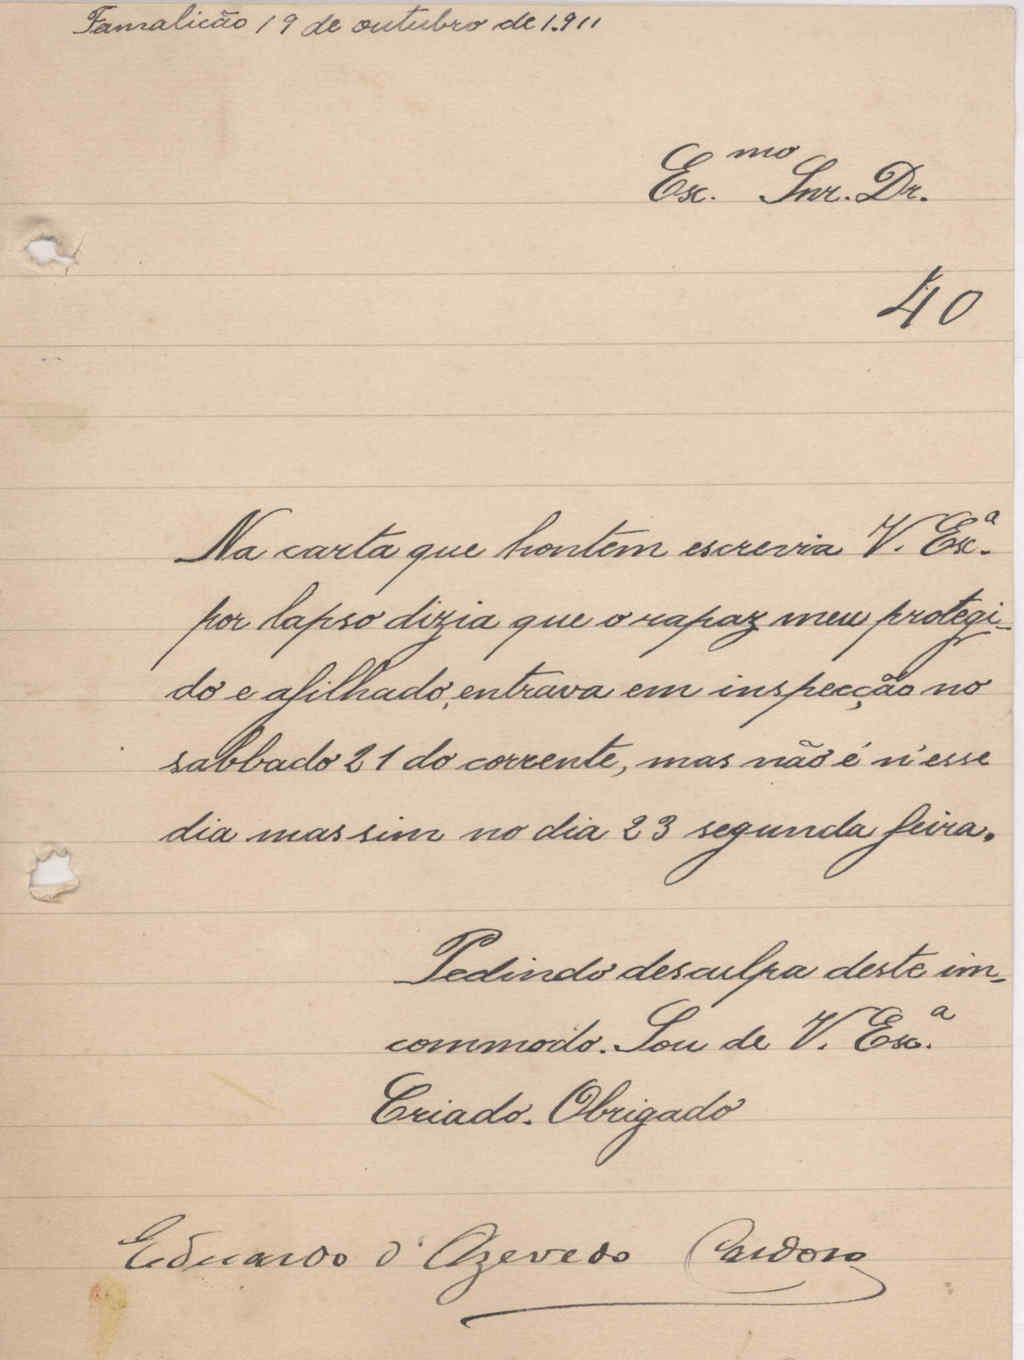 Famalicão 19 de outubro de 1.911
Ex.mo Snr. Dr.
40
Na carta que hontem escrevia V. Ex.a
por lapso dizia que o rapaz meu protegi-
do e afilhado, entrava em inspecção no
sabbado 21 do corrente, mas não é n'esse
dia mas sim no dia 23 segunda feira.
Pedindo desculpa deste im-
commodo. Sou de V. Ex.a
Criado. Obrigado
Eduardo d'Azevedo Cardoso